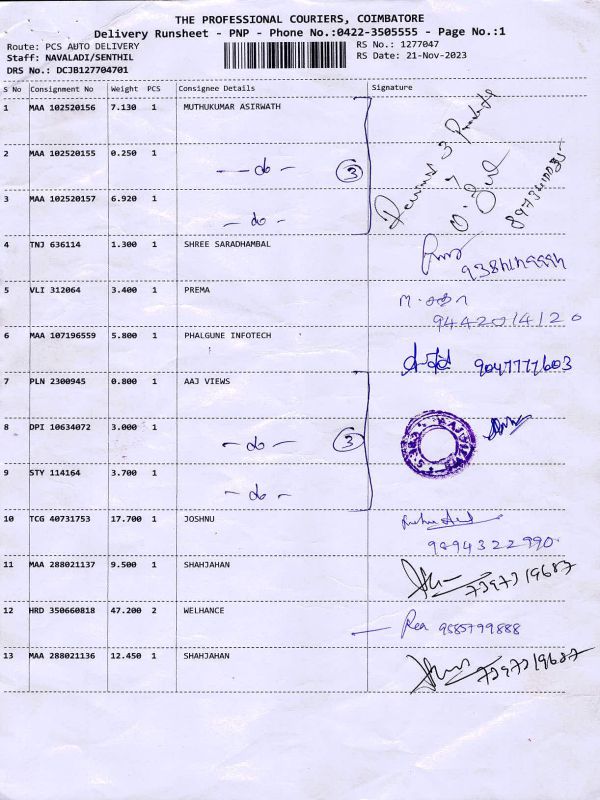 THE PROFESSIONAL COURIERS, COIMBATORE
Delivery Runsheet - PNP - Phone No.:0422-3505555 - Page No.:1
Route: PCS AUTO DELIVERY
RS No.: 1277047
Staff: NAVALADI/SENTHIL
RS Date: 21-Nov-2023
DRS No.: DCJB127704701
S No Consignment No Weight PCS Consignee Details Signature
1 MAA 102520156 7.130 1 MUTHUKUMAR ASIRWATH
2 MAA 102520155 0.250 1 - do - 3
3 MAA 102520157 6.920 1 - do -
4 TNJ 636114 1.300 1 SHREE SARADHAMBAL
5 VLI 312064 3.400 1 PREMA
9442014120
6 MAA 107196559 5.800 1 PHALGUNE INFOTECH 9047777603
7 PLN 2300945 0.800 1 AAJ VIEWS
8 DPI 10634072 3.000 1 - do - 3
9 STY 114164 3.700 1 - do -
10 TCG 40731753 17.700 1 JOSHNU
9894322990
11 MAA 288021137 9.500 1 SHAHJAHAN 7397319687
12 HRD 350660818 47.200 2 WELHANCE 9585799888
13 MAA 288021136 12.450 1 SHAHJAHAN 7397319687